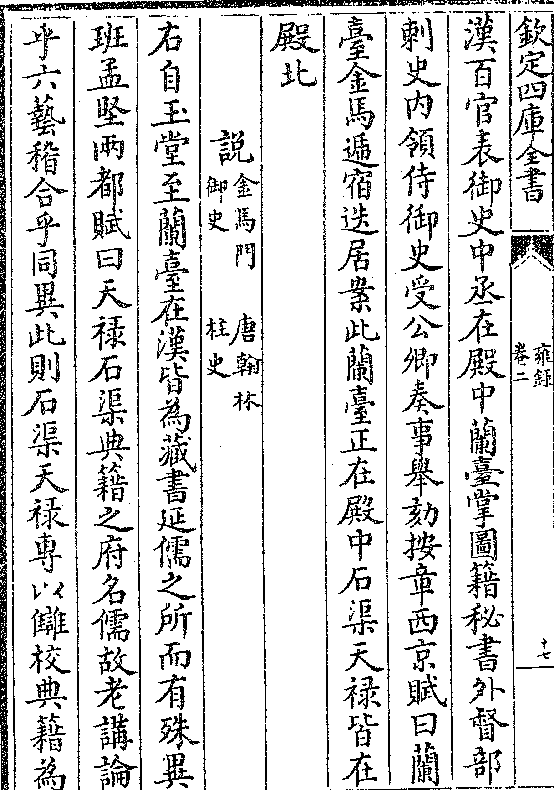 欽定四庫全書
雍錄
卷二
十七
漢百官表御史中丞在殿中蘭臺掌圖籍秘書外督部
刺史内領侍御史受公卿奏事舉劾按章西京賦曰蘭
臺金馬遞宿迭居案此蘭臺正在殿中石渠天禄皆在
殿北
說金馬門　唐翰林
御史　柱史
右自玉堂至蘭臺在漢皆為藏書延儒之所而有殊異
班孟堅兩都賦曰天禄石渠典籍之府名儒故老講論
乎六藝稽合乎同異此則石渠天禄專以讎校典籍為